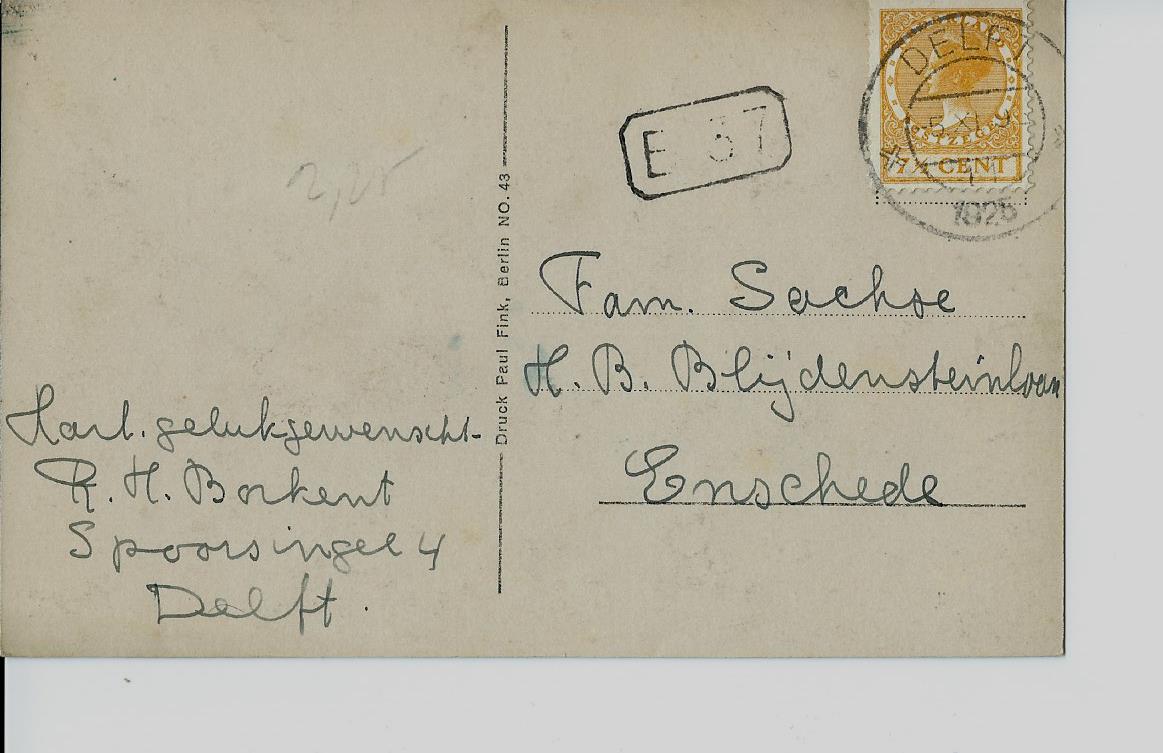 2,25
Hart. gelukgewenscht-
R. H. Borkent
Spoorsingel 4
Delft.
Druck Paul Fink, Berlin NO. 43
E 37
DELFT
XI
1925
7½ CENT
Fam. Sachse
H. B. Blijdensteinlaan
Enschede